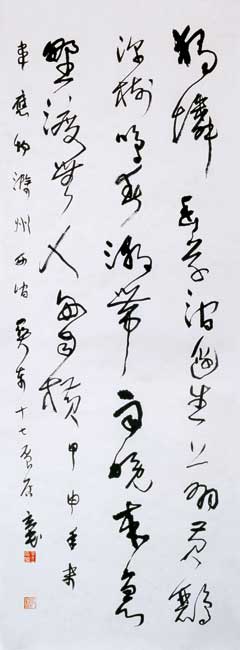 獨憐幽草澗邊生上有黃鸝
深樹鳴春潮帶雨晚來急
野渡無人舟自橫 甲申年
韋應物滁州西澗 十七